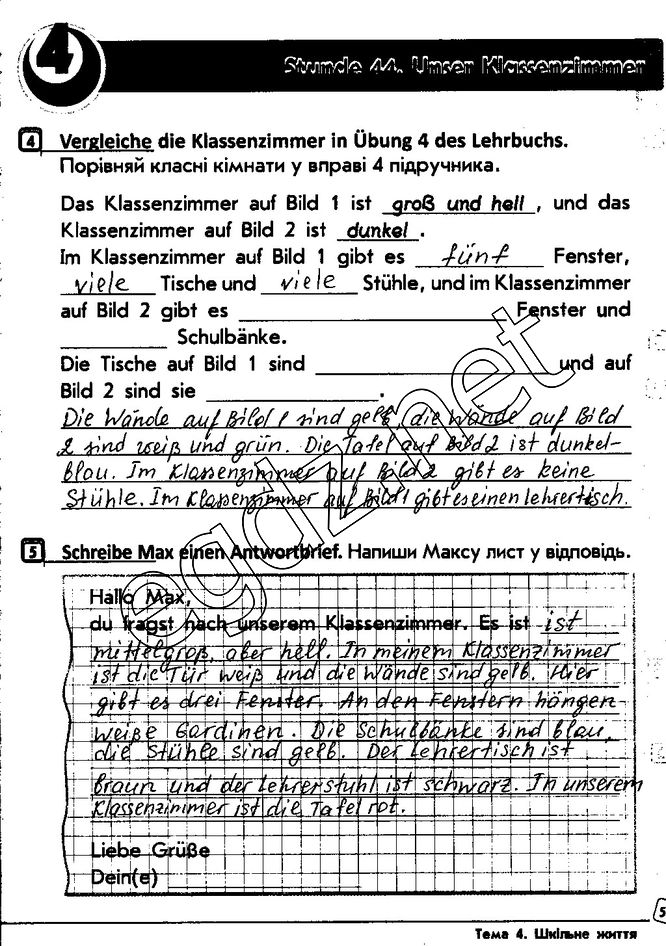 4
Stunde 44. Unser Klassenzimmer
4 Vergleiche die Klassenzimmer in Übung 4 des Lehrbuchs.
Порівняй класні кімнати у вправі 4 підручника.
Das Klassenzimmer auf Bild 1 ist groß und hell, und das
Klassenzimmer auf Bild 2 ist dunkel.
Im Klassenzimmer auf Bild 1 gibt es fünf Fenster,
viele Tische und viele Stühle, und im Klassenzimmer
auf Bild 2 gibt es ____ Fenster und
____ Schulbänke.
Die Tische auf Bild 1 sind ____ und auf
Bild 2 sind sie ____.
Die Wände auf Bild 1 sind gelb, die Wände auf Bild
2 sind weiß und grün. Die Tafel auf Bild 2 ist dunkel-
blau. Im Klassenzimmer auf Bild 2 gibt es keine
Stühle. Im Klassenzimmer auf Bild 1 gibt es einen Lehrertisch.
5 Schreibe Max einen Antwortbrief. Напиши Максу лист у відповідь.
Hallo Max,
du fragst nach unserem Klassenzimmer. Es ist ist
mittelgroß, aber hell. In meinem Klassenzimmer
ist die Tür weiß und die Wände sind gelb. Hier
gibt es drei Fenster. An den Fenstern hängen
weiße Gardinen. Die Schulbänke sind blau,
die Stühle sind gelb. Der Lehrertisch ist
braun und der Lehrerstuhl ist schwarz. In unserem
Klassenzimmer ist die Tafel rot.
Liebe Grüße
Dein(e)
egdz.net
5
Тема 4. Шкільне життя